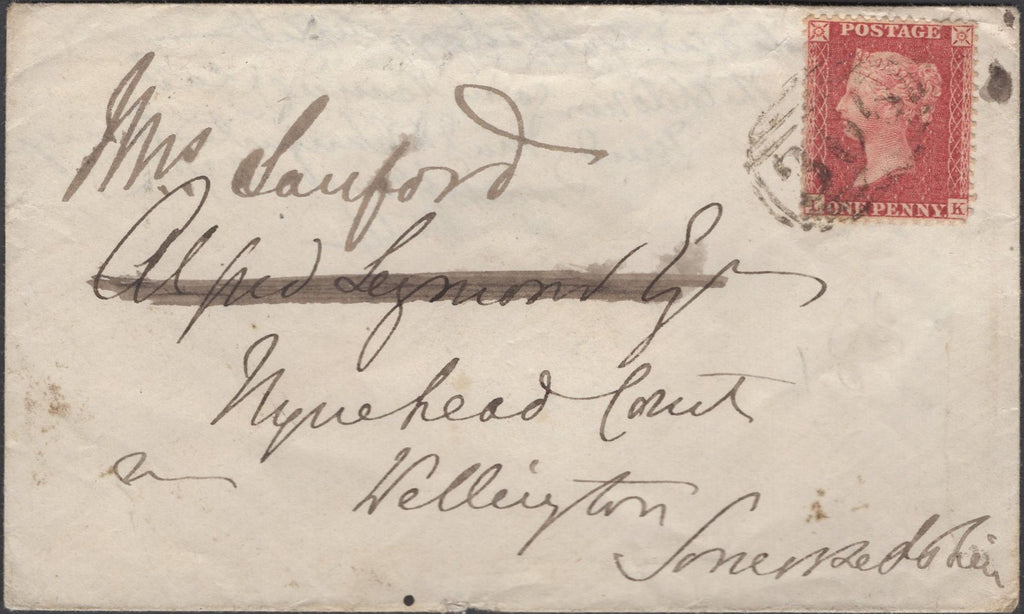 POSTAGE
ONE PENNY K
Mrs Sanford
Alfred Seymour Esqr
Nynehead Court
Wellington
Somersetshire